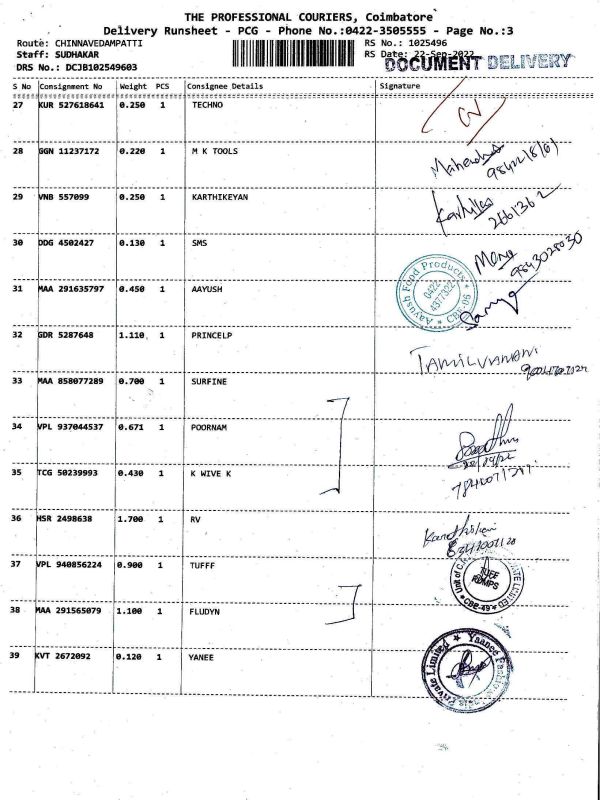 THE PROFESSIONAL COURIERS, Coimbatore
Delivery Runsheet - PCG - Phone No.:0422-3505555 - Page No.:3
Route: CHINNAVEDAMPATTI
RS No.: 1025496
Staff: SUDHAKAR
RS Date: 22-Sep-2022
DRS No.: DCJB102549603
DOCUMENT DELIVERY
S No Consignment No Weight PCS Consignee Details Signature
27 KUR 527618641 0.250 1 TECHNO
28 GGN 11237172 0.220 1 M K TOOLS
29 VNB 557099 0.250 1 KARTHIKEYAN
2661362
30 DDG 4502427 0.130 1 SMS
9843028030
31 MAA 291635797 0.450 1 AAYUSH
Aayush Food Products
0422-
4377322
CBE-06
32 GDR 5287648 1.110 1 PRINCELP
TAMILVANAN
33 MAA 858077289 0.700 1 SURFINE
34 VPL 937044537 0.671 1 POORNAM
35 TCG 50239993 0.430 1 K WIVE K
36 HSR 2498638 1.700 1 RV
37 VPL 940856224 0.900 1 TUFFF
Unit of
TUFF
PUMPS
CBE-49
38 MAA 291565079 1.100 1 FLUDYN
39 KVT 2672092 0.120 1 YANEE
Private Limited